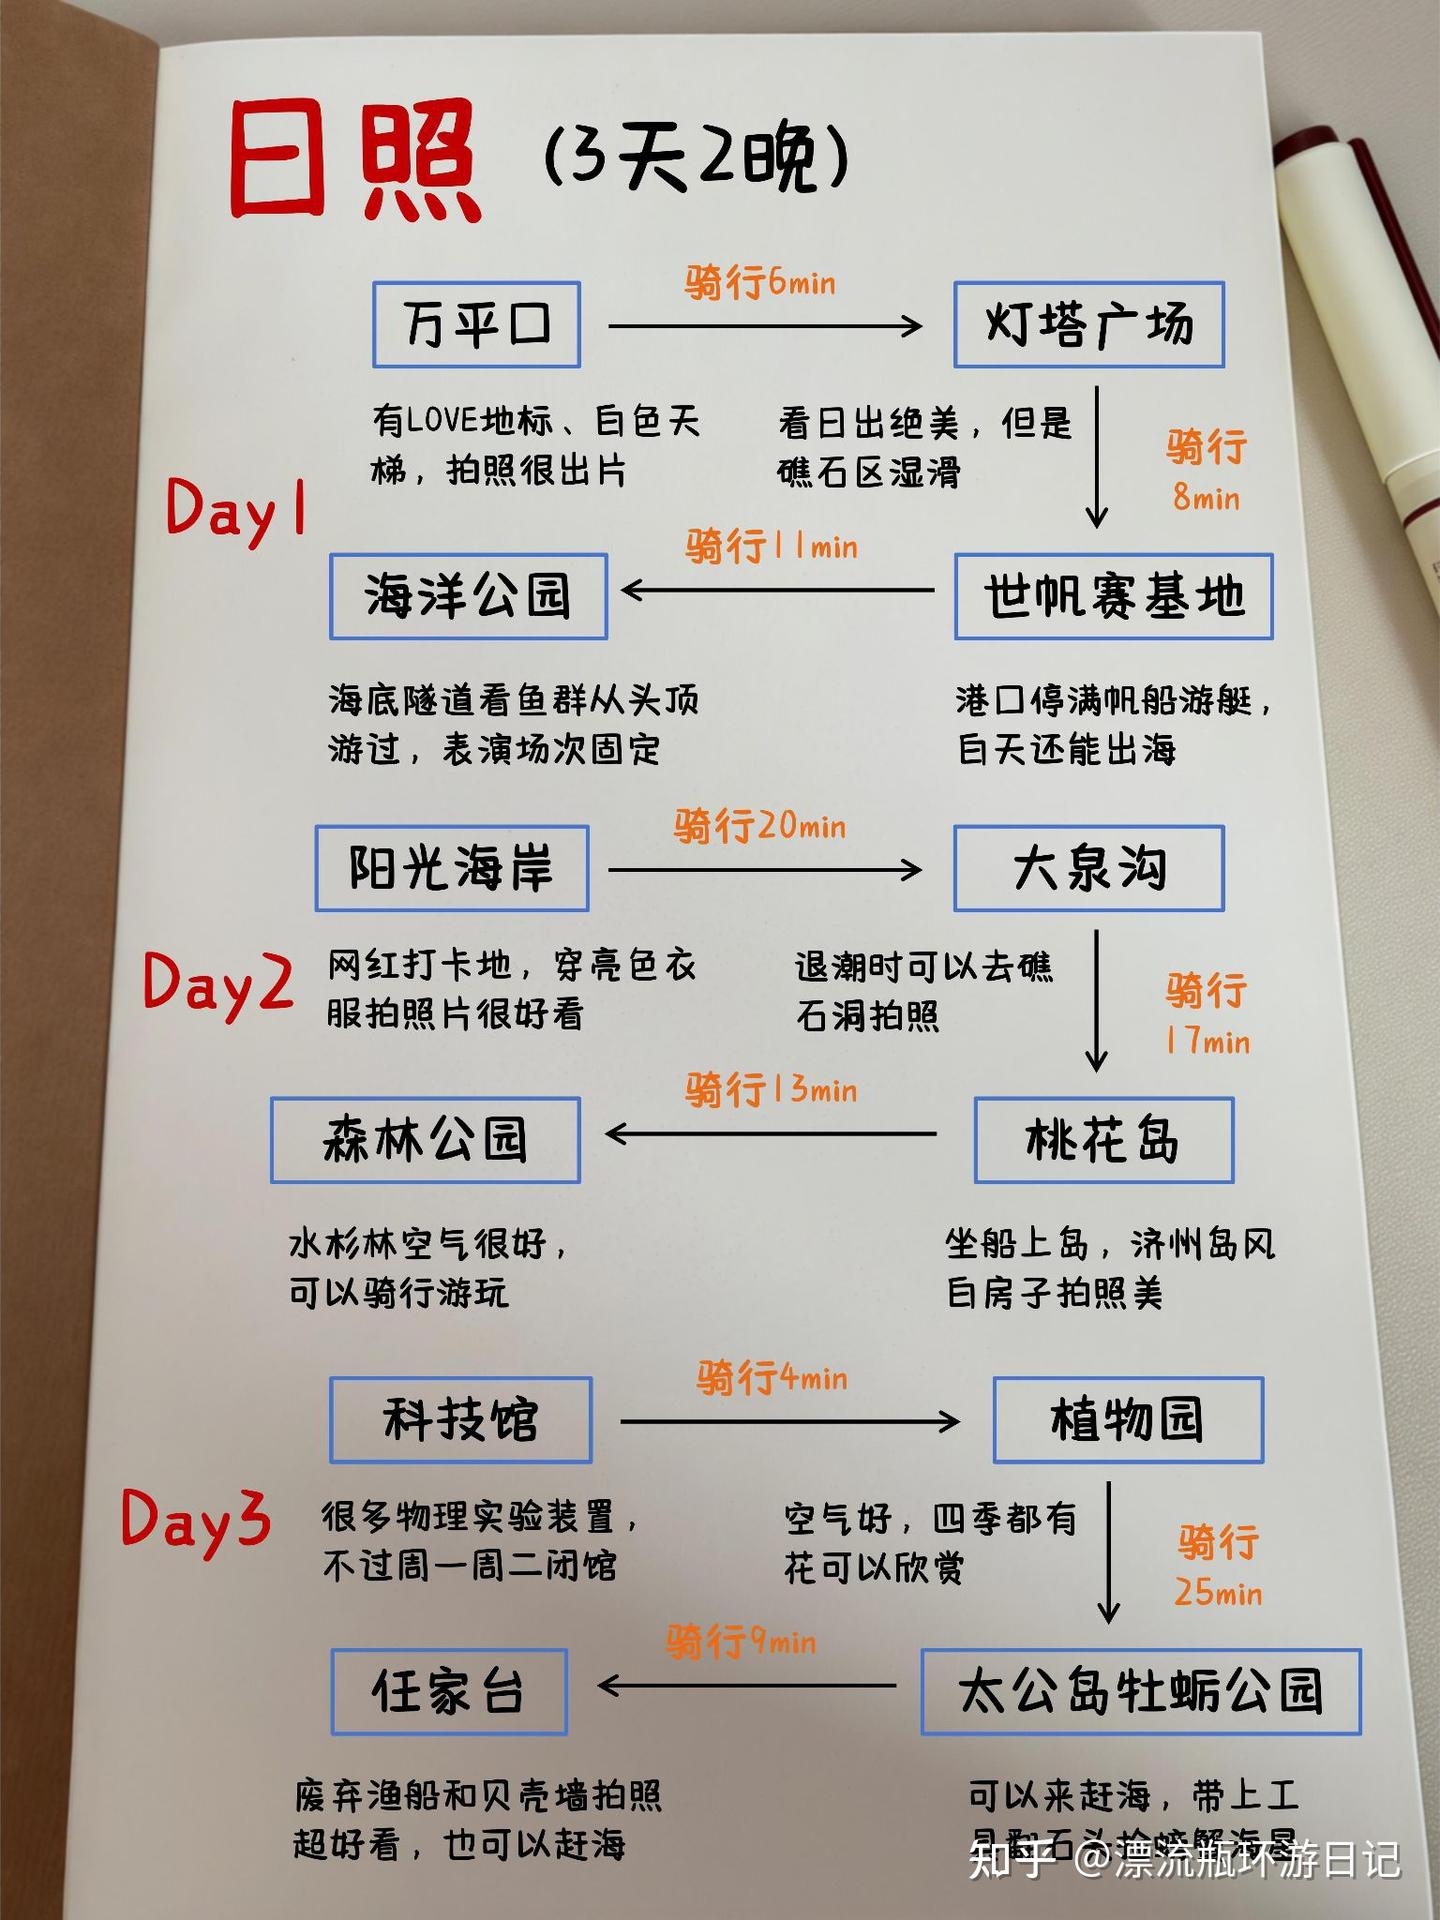 日照 (3天2晚)
Day1
万平口
骑行6min
灯塔广场
有LOVE地标、白色天
梯，拍照很出片
看日出绝美，但是
礁石区湿滑
骑行
8min
海洋公园
骑行11min
世帆赛基地
海底隧道看鱼群从头顶
游过，表演场次固定
港口停满帆船游艇，
白天还能出海
Day2
阳光海岸
骑行20min
大泉沟
网红打卡地，穿亮色衣
服拍照片很好看
退潮时可以去礁
石洞拍照
骑行
17min
森林公园
骑行13min
桃花岛
水杉林空气很好，
可以骑行游玩
坐船上岛，济州岛风
白房子拍照美
Day3
科技馆
骑行4min
植物园
很多物理实验装置，
不过周一周二闭馆
空气好，四季都有
花可以欣赏
骑行
25min
任家台
骑行9min
太公岛牡蛎公园
废弃渔船和贝壳墙拍照
超好看，也可以赶海
可以来赶海，带上工
具翻石头捡螃蟹海星
知乎 @漂流瓶环游日记